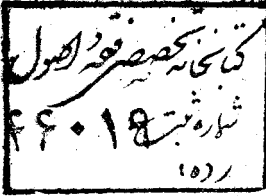 کتابخانه تخصصی فقه و اصول
شماره ثبت ۴۴۰۱۹
رده: